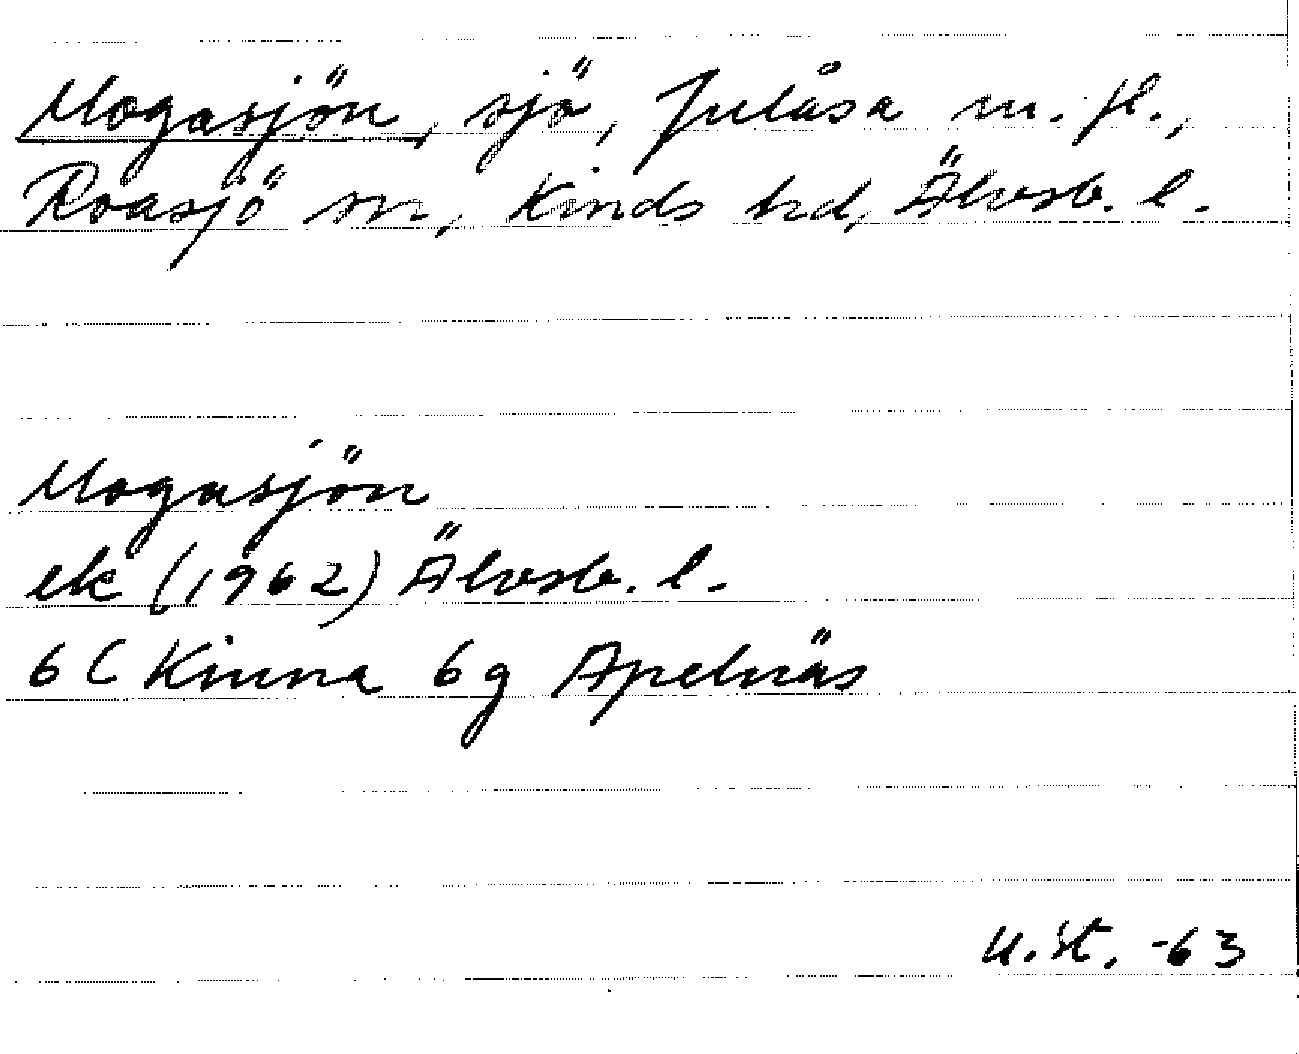 Mogasjön, sjö, Julåsa m. fl.,
Roasjö sn, Kinds hd, Älvsb. l.
Mogasjön
ek (1962) Älvsb. l.
6 C Kinna 6 g Apelnäs
U. St. -63